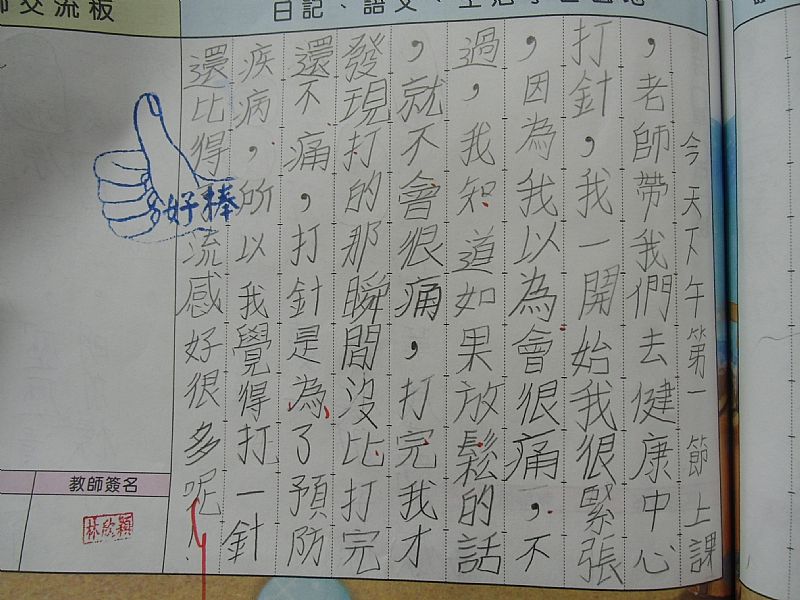 交流板
日記、語文、
今天下午第一節上課
，老師帶我們去健康中心
打針，我一開始我很緊張
，因為我以為會很痛，不
過，我知道如果放鬆的話
，就不會很痛，打完我才
發現打的那瞬間沒比打完
還不痛，打針是為了預防
疾病，所以我覺得打一針
還比得流感好很多呢！
好棒
教師簽名
林欣穎